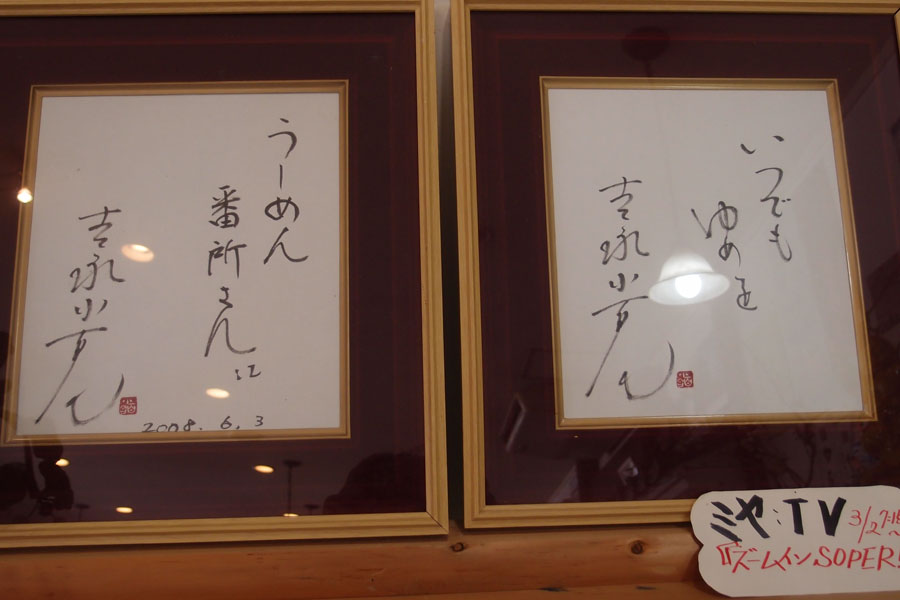 うーめん
番所さん江
吉永小百合
2008. 6. 3
いつでも
ゆめを
吉永小百合
ミヤ:TV 3/2 7:18~
『ズームインSOPER!